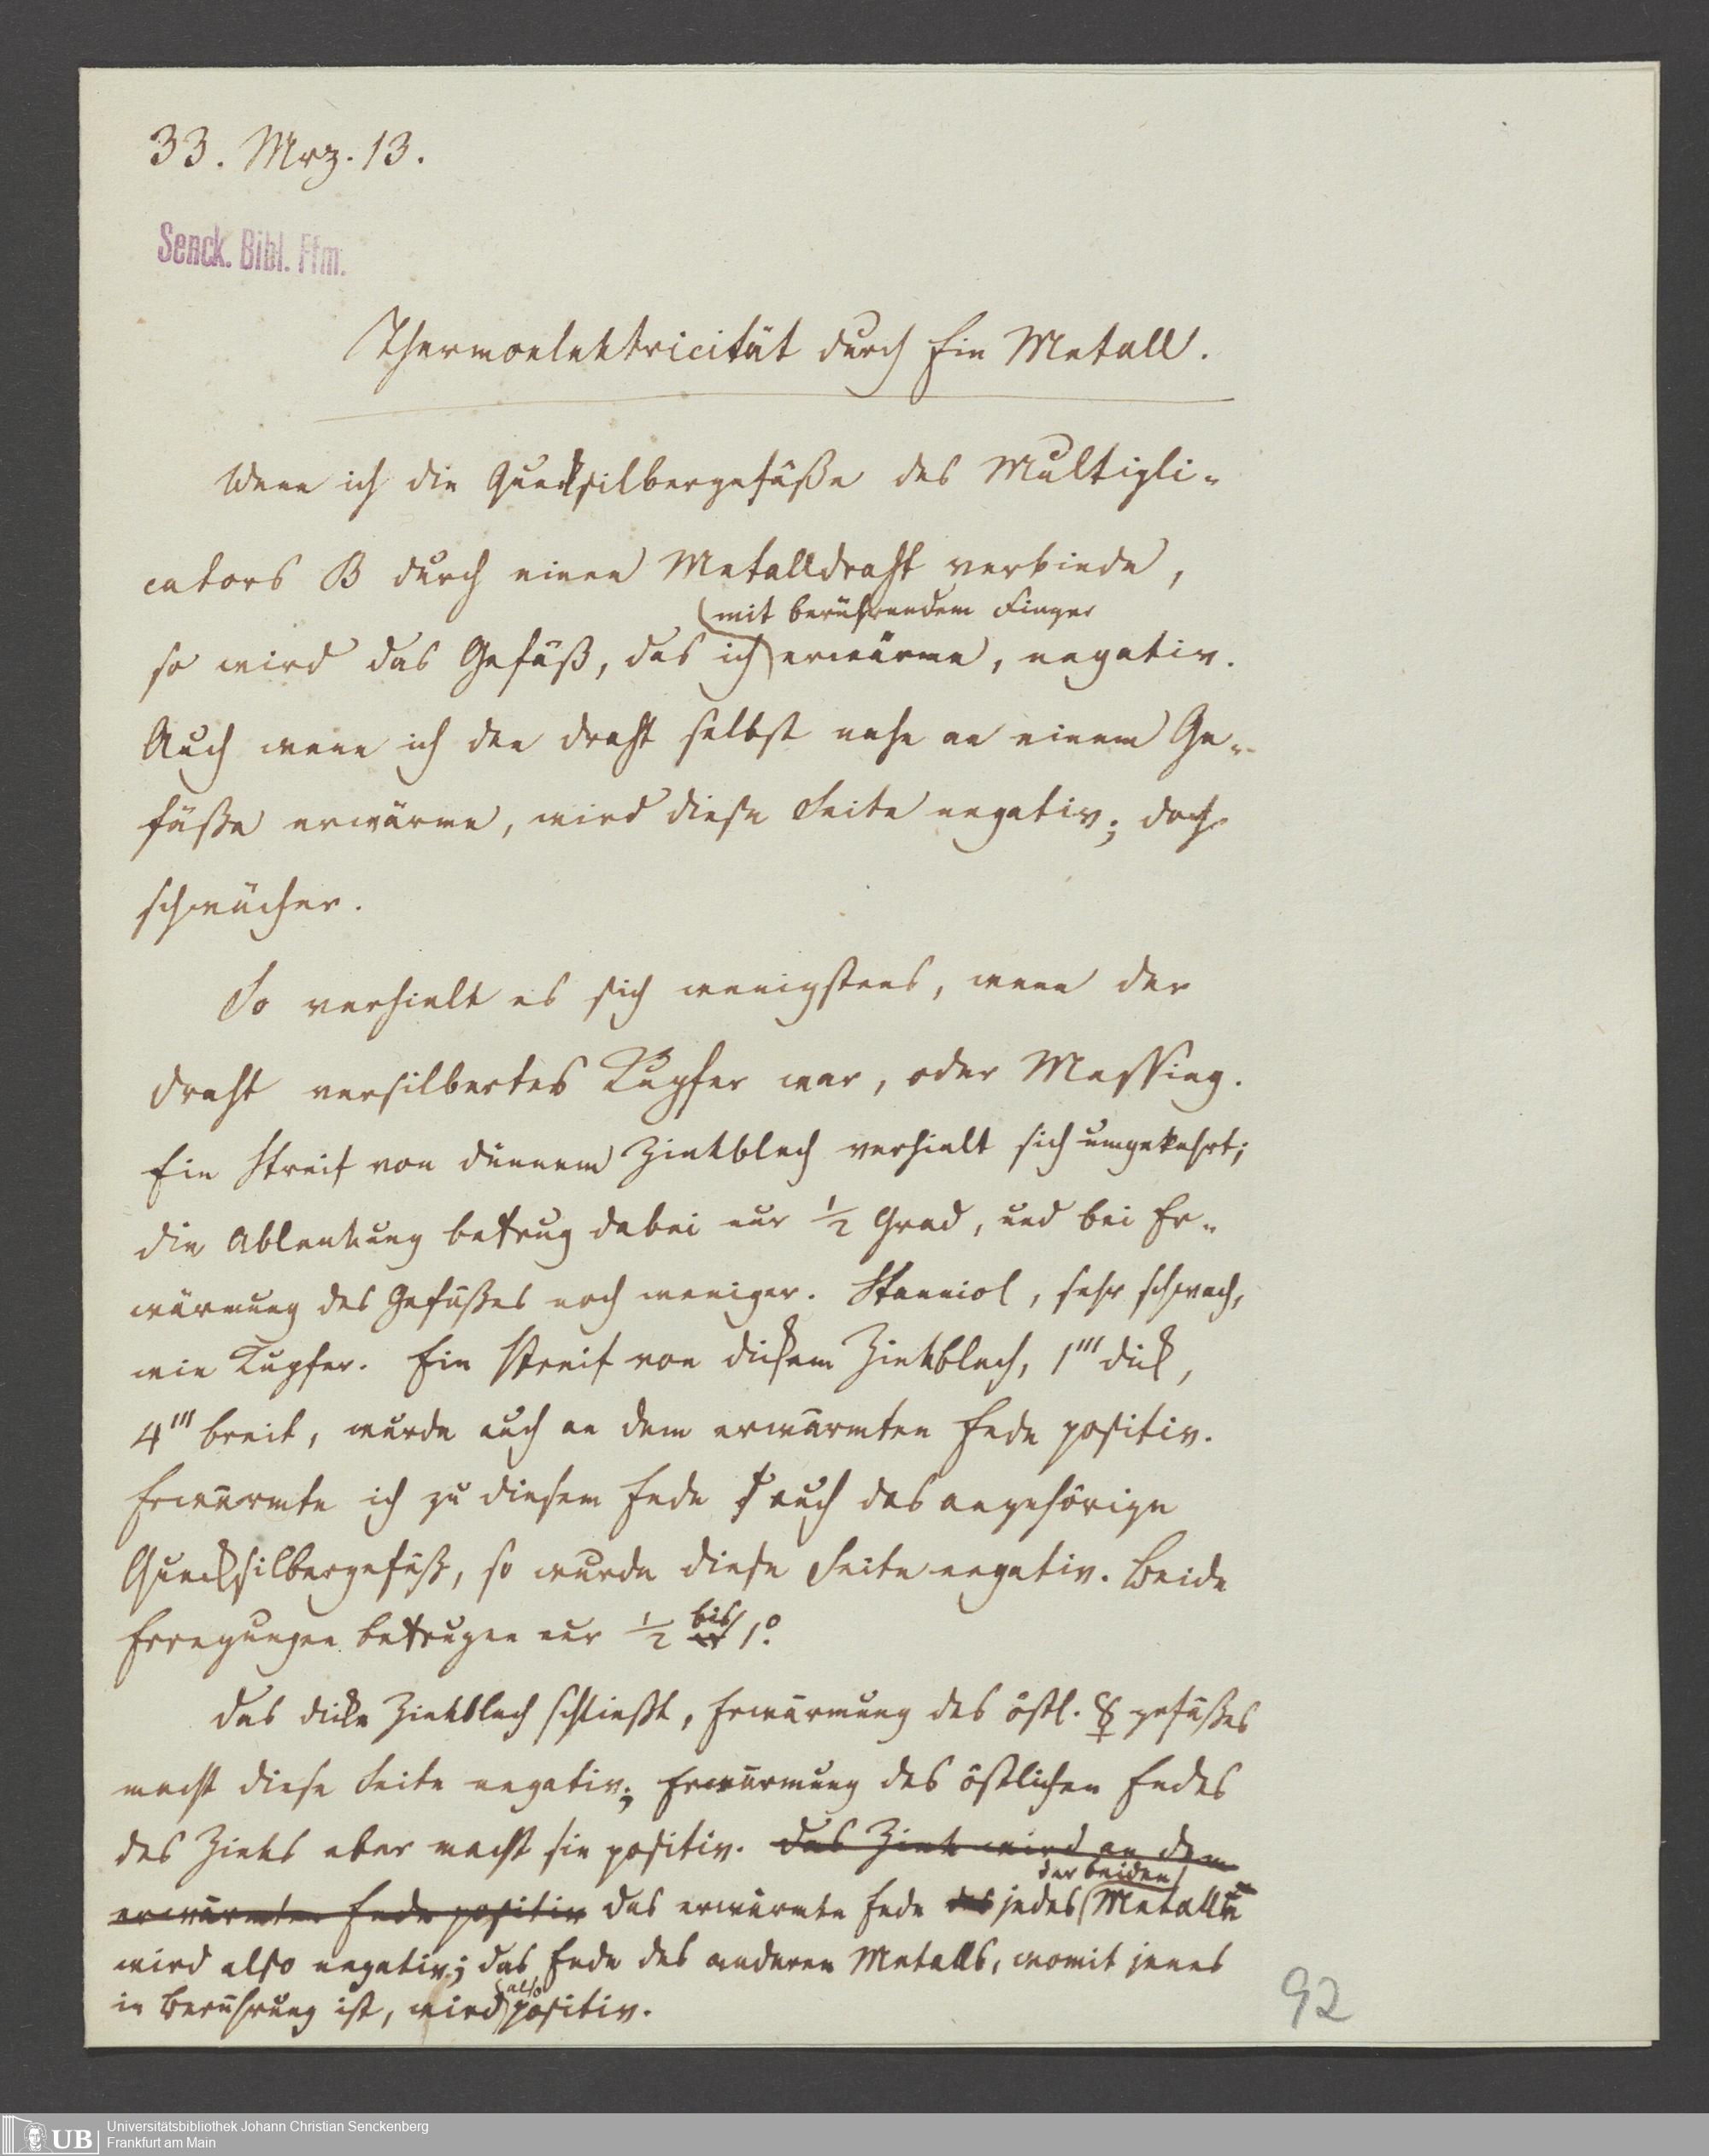 33. Mrz. 13.
Senck. Bibl. Ffm.
Thermoelektricität durch Ein Metall.
Wenn ich die Quecksilbergefäße des Multipli-
cators B durch einen Metalldraht verbinde,
mit berührendem Finger
so wird das Gefäß, das ich erwärme, negativ.
Auch wenn ich den Draht selbst nahe an einem Ge-
fäße erwärme, wird diese Seite negativ; doch
schwächer.
So verhielt es sich wenigstens, wenn der
Draht versilbertes Kupfer war, oder Messing.
Ein Streif von dünnem Zinkblech verhielt sich umgekehrt;
die Ablenkung betrug dabei nur ½ Grad, und bei Er-
wärmung des Gefäßes noch weniger. Stanniol, sehr schwach,
wie Kupfer. Ein Streif von dickem Zinkblech, 1''' dick,
4''' breit, wurde auch an dem erwärmten Ende positiv.
Erwärmte ich zu diesem Ende auch das angehörige
Quecksilbergefäß, so wurde diese Seite negativ. Beide
Erregungen betrugen nur ½ bis 1°.
Das dicke Zinkblech schließt, Erwärmung des östl. ☿ gefäßes
macht diese Seite negativ; Erwärmung des östlichen Endes
des Zinks aber macht sie positiv. Das Zink wird an dem
der beiden
erwärmten Ende positiv Das erwärmte Ende des jedes Metalle
wird also negativ; das Ende des anderen Metalls, womit jenes
also
in Berührung ist, wird positiv.
92
UB
Universitätsbibliothek Johann Christian Senckenberg
Frankfurt am Main